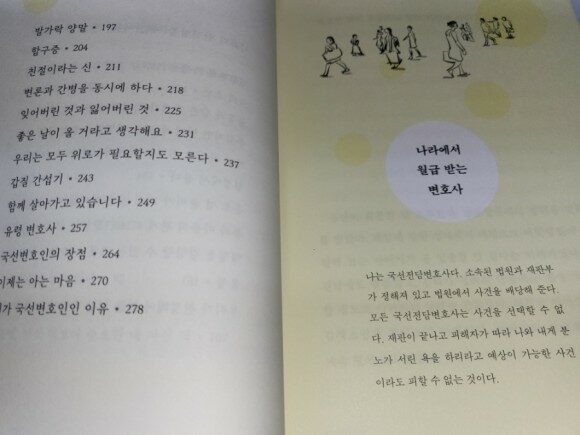 발가락 양말 • 197
함구증 • 204
친절이라는 신 • 211
변론과 간병을 동시에 하다 • 218
잊어버린 것과 잃어버린 것 • 225
좋은 날이 올 거라고 생각해요 • 231
우리는 모두 위로가 필요할지도 모른다 • 237
갑질 간섭기 • 243
함께 살아가고 있습니다 • 249
유령 변호사 • 257
국선변호인의 장점 • 264
이제는 아는 마음 • 270
가 국선변호인인 이유 • 278
나라에서
월급 받는
변호사
나는 국선전담변호사다. 소속된 법원과 재판부
가 정해져 있고 법원에서 사건을 배당해 준다.
모든 국선전담변호사는 사건을 선택할 수 없
다. 재판이 끝나고 피해자가 따라 나와 내게 분
노가 서린 욕을 하리라고 예상이 가능한 사건
이라도 피할 수 없는 것이다.